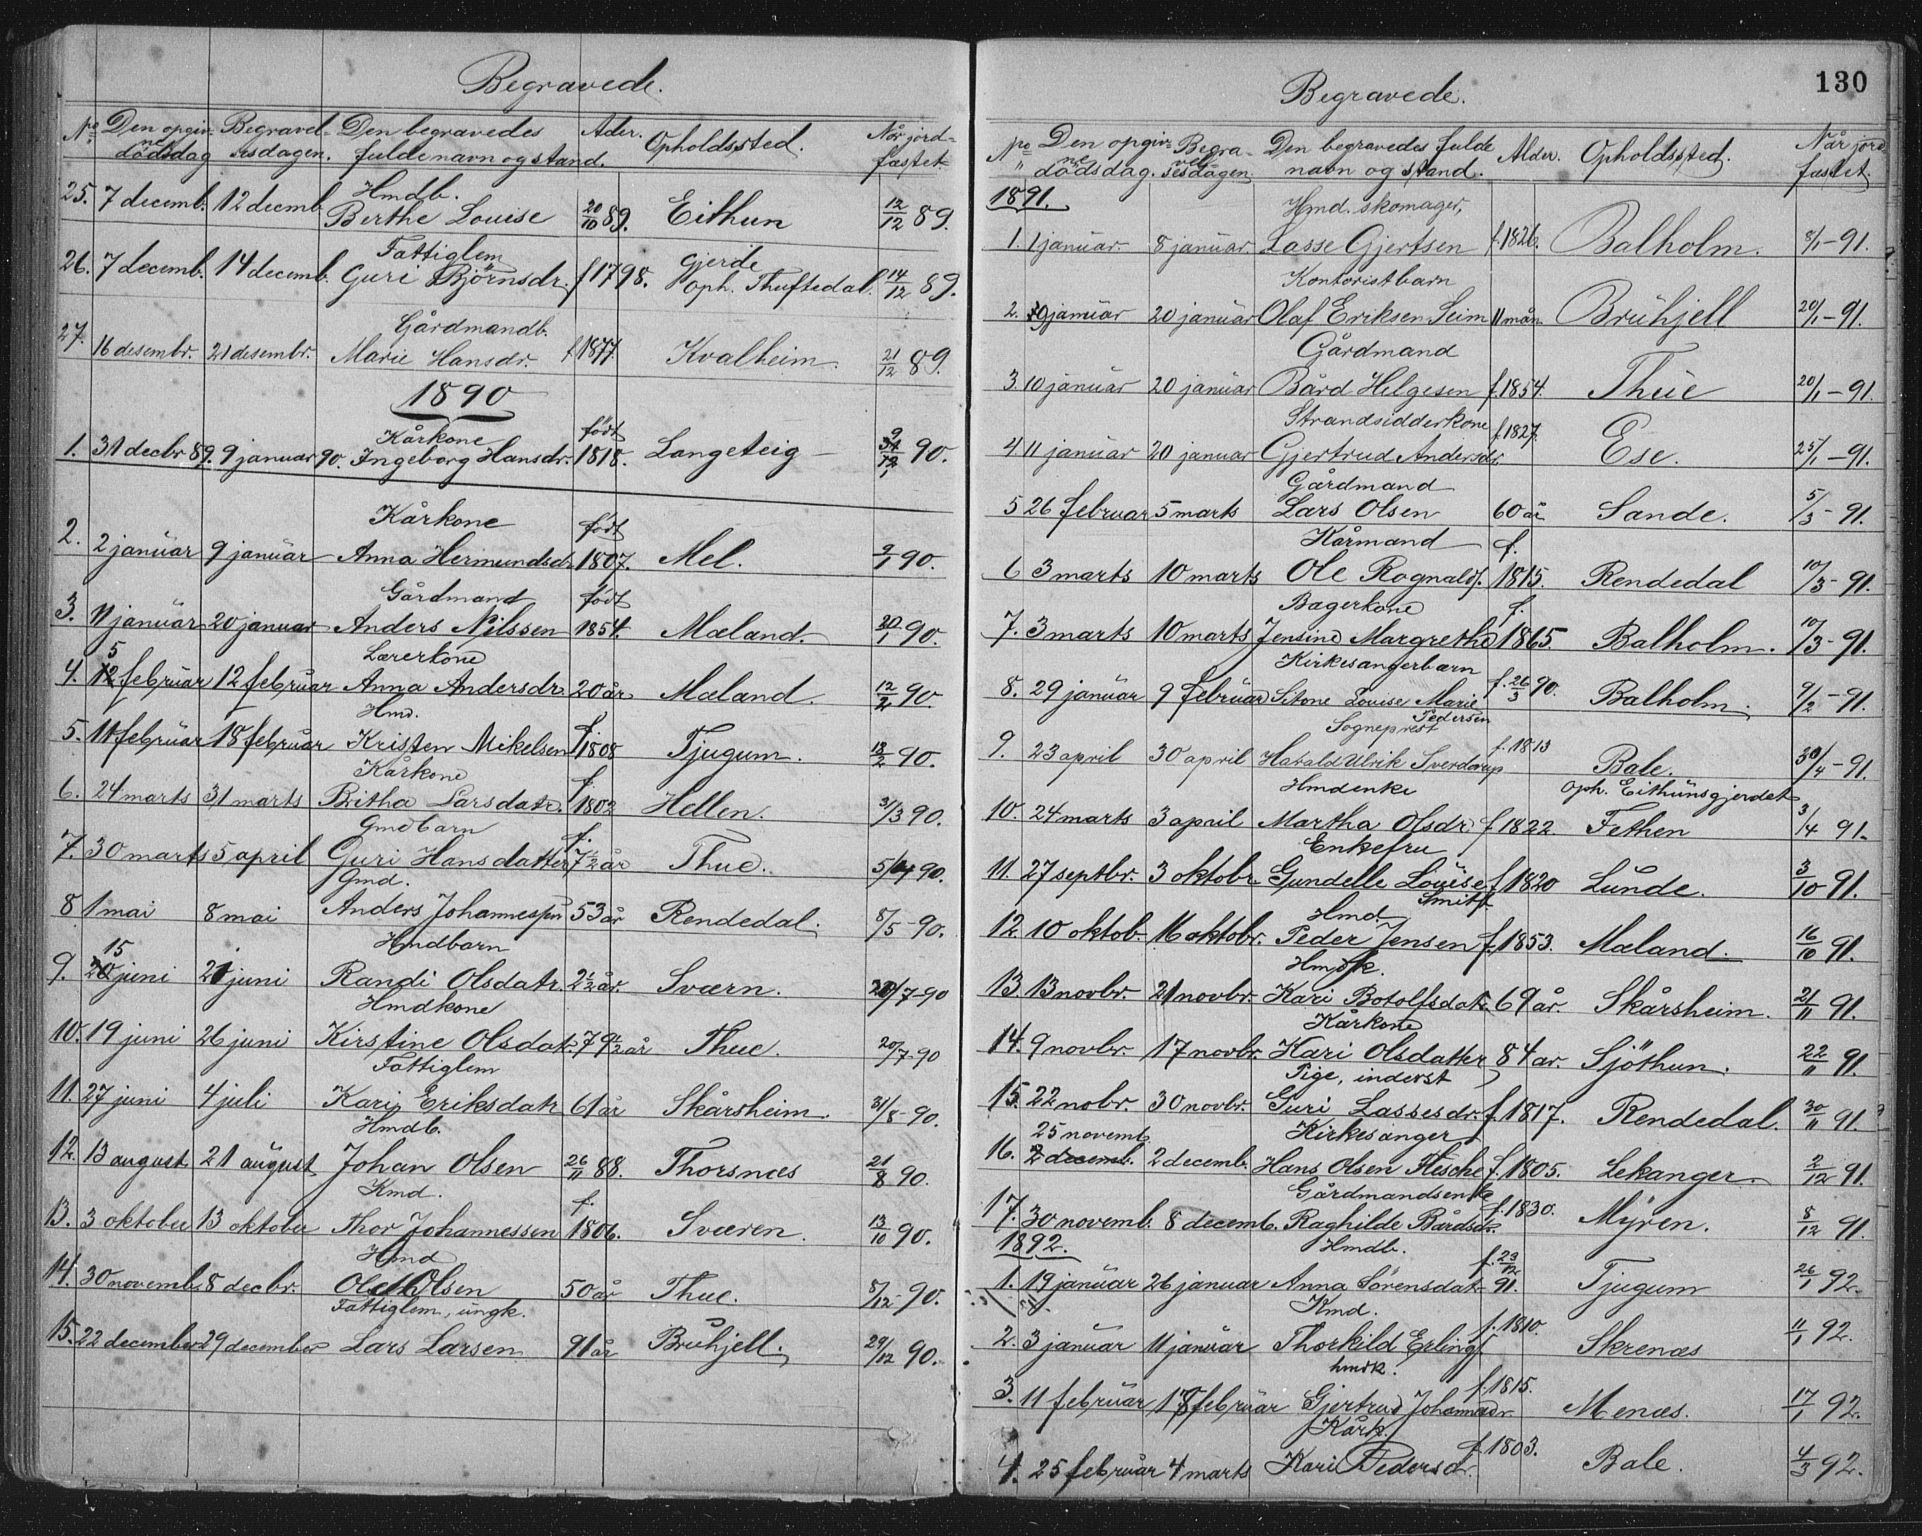 Begravede.
No. Den opgivne dödsdag Begravelsesdagen. Den begravedes fulde navn og stand. Alder. Opholdssted. Når jordfæstet.
Hmdb.
25. 7 decemb. 12 decemb. Berthe Louise 20/10 89. Eithun 12/12 89.
Fattiglem Gjerde
26. 7 decemb. 14 decemb. Guri Björnsdr. f 1798. oph. Thuftedal. 14/12 89.
Gårdmandb.
27. 16 desembr. 21 desembr. Marie Hansdr. f 1877. Kvalheim. 21/12 89.
1890
Kårkone født
1. 31 decbr 89. 9 januar 90. Ingeborg Hansdr. 1818. Langeteig 9/1 90.
Kårkone født
2. 2 januar 9 januar Anna Hermundsd. 1807. Mel. 9/1 90.
Gårdmand født
3. 11 januar 20 januar Anders Nilssen 1854. Mæland. 20/1 90.
5 Lærerkone
4. 12 februar 12 februar Anna Andersdr. 20 år Mæland. 12/2 90.
Hmd. f.
5. 11 februar 18 februar Kristen Mikelsen 1808 Tjugum. 18/2 90.
Kårkone f.
6. 24 marts 31 marts Britha Larsdatr. 1802 Hellen. 31/3 90.
Gmdbarn f.
7. 30 marts 5 april Guri Hansdatter 7½ år Thue. 5/4 90.
Gmd.
8 1 mai 8 mai Anders Johannessen 53 år Rendedal. 8/5 - 90.
15 Hmdbarn
9. 20 juni 21 juni Randi Olsdatr. 2½ år. Sværn. 20/7 - 90
Hmdkone
10. 19 juni 26 juni Kirstine Olsdat. 79½ år Thue. 20/7 - 90
Fattiglem
11. 27 juni 4 juli Kari Eriksdatr 61 år Skårsheim. 31/8 - 90.
Hmdb.
12. 13 august 21 august Johan Olsen 26/11 88. Thorsnæs 21/8 90.
Kmd. f.
13. 3 oktober 13 oktober Thor Johannessen 1806. Sværen. 13/10 90.
Hmd
14. 30 novemb. 8 decbr. Ole Olsen 50 år Thue. 8/12 - 90.
Fattiglem, ungk.
15. 22 december 29 december Lars Larsen 91 år Bruhjell. 29/12 90.
130
Begravede.
No. Den opgivne dödsdag. Begravelsesdagen Den begravedes fulde navn og stand. Alder. Opholdssted. Når jordfæstet.
1891. Hmd. skomager,
1. 1 januar 8 januar. Lasse Gjertsen f. 1826. Balholm. 8/1 - 91.
Kontoristbarn
2. 10 januar 20 januar Olaf Eriksen Seim 11 mån. Bruhjell 20/1 - 91.
Gårdmand
3 10 januar 20 januar Bård Helgesen f. 1854. Thue 20/1 - 91.
Strandsidderkone f. 1827.
4 11 januar 20 januar Gjertrud Andersdr. Ese. 25/1 - 91.
Gårdmand
5 26 februar 5 marts Lars Olsen 60 år Sande. 5/3 - 91.
Kårmand f.
6 3 marts 10 marts Ole Rognalds. 1815. Rendedal 10/3 - 91.
Bagerkone f.
7. 3 marts 10 marts Jensine Margrethe 1865. Balholm. 10/3 - 91.
Kirkesangerbarn
8. 29 januar 9 februar Sitone Louise Marie f. 26/3 90. Balholm. 9/2 - 91.
Pedersen
Sogneprest f. 1813
9. 23 april 30 april Harald Ulrik Sverdrup Bale. 30/4 - 91.
Hmdenke oph. Eithunsgjerdet
10. 24 marts 3 april Martha Olsdr f 1822. Fethen 3/4 91.
Enkefru
11. 27 septbr. 3 oktobr Gundelle Louise f 1820 Lunde. 3/10 91.
Smitt.
Hmd.
12. 10 oktob. 16 oktobr. Peder Jensen f. 1853. Mæland. 16/10 91.
Hmdk.
13. 13 novbr. 21 novbr. Kari Botolfsdatr. 69 år. Skårsheim. 21/11 91.
Kårkone
14. 9 novbr. 17 novbr. Kari Olsdatter 84 ar. Sjöthun. 22/11 91.
Pige, inderst
15. 22 nobr. 30 novbr. Guri Lassesdr. f. 1817. Rendedal. 30/11 91.
25 novemb. Kirkesanger
16. 2 decemb. 2 decemb. Hans Olsen Flesche f. 1805. Lekanger. 2/12 91.
Gårdmandsenke f. 1830.
17. 30 novemb. 8 decemb. Raghilde Bårdsdr. Myren. 8/12 91.
1892. Hmdb. f. 23/12
1. 19 januar 26 januar Anna Sörensdatr 91. Tjugum 26/1 92.
Kmd. f. 1810.
2. 3 januar 11 januar Thorkild Erlings Skrenæs 11/1 92.
hmdk. f. 1815.
3. 11 februar 17 februar Gjertrud Johannesdr. Menæs. 17/1 92.
Kårk. f. 1803.
4. 25 februar 4 marts Kari Pedersd. Bale. 4/3 92.